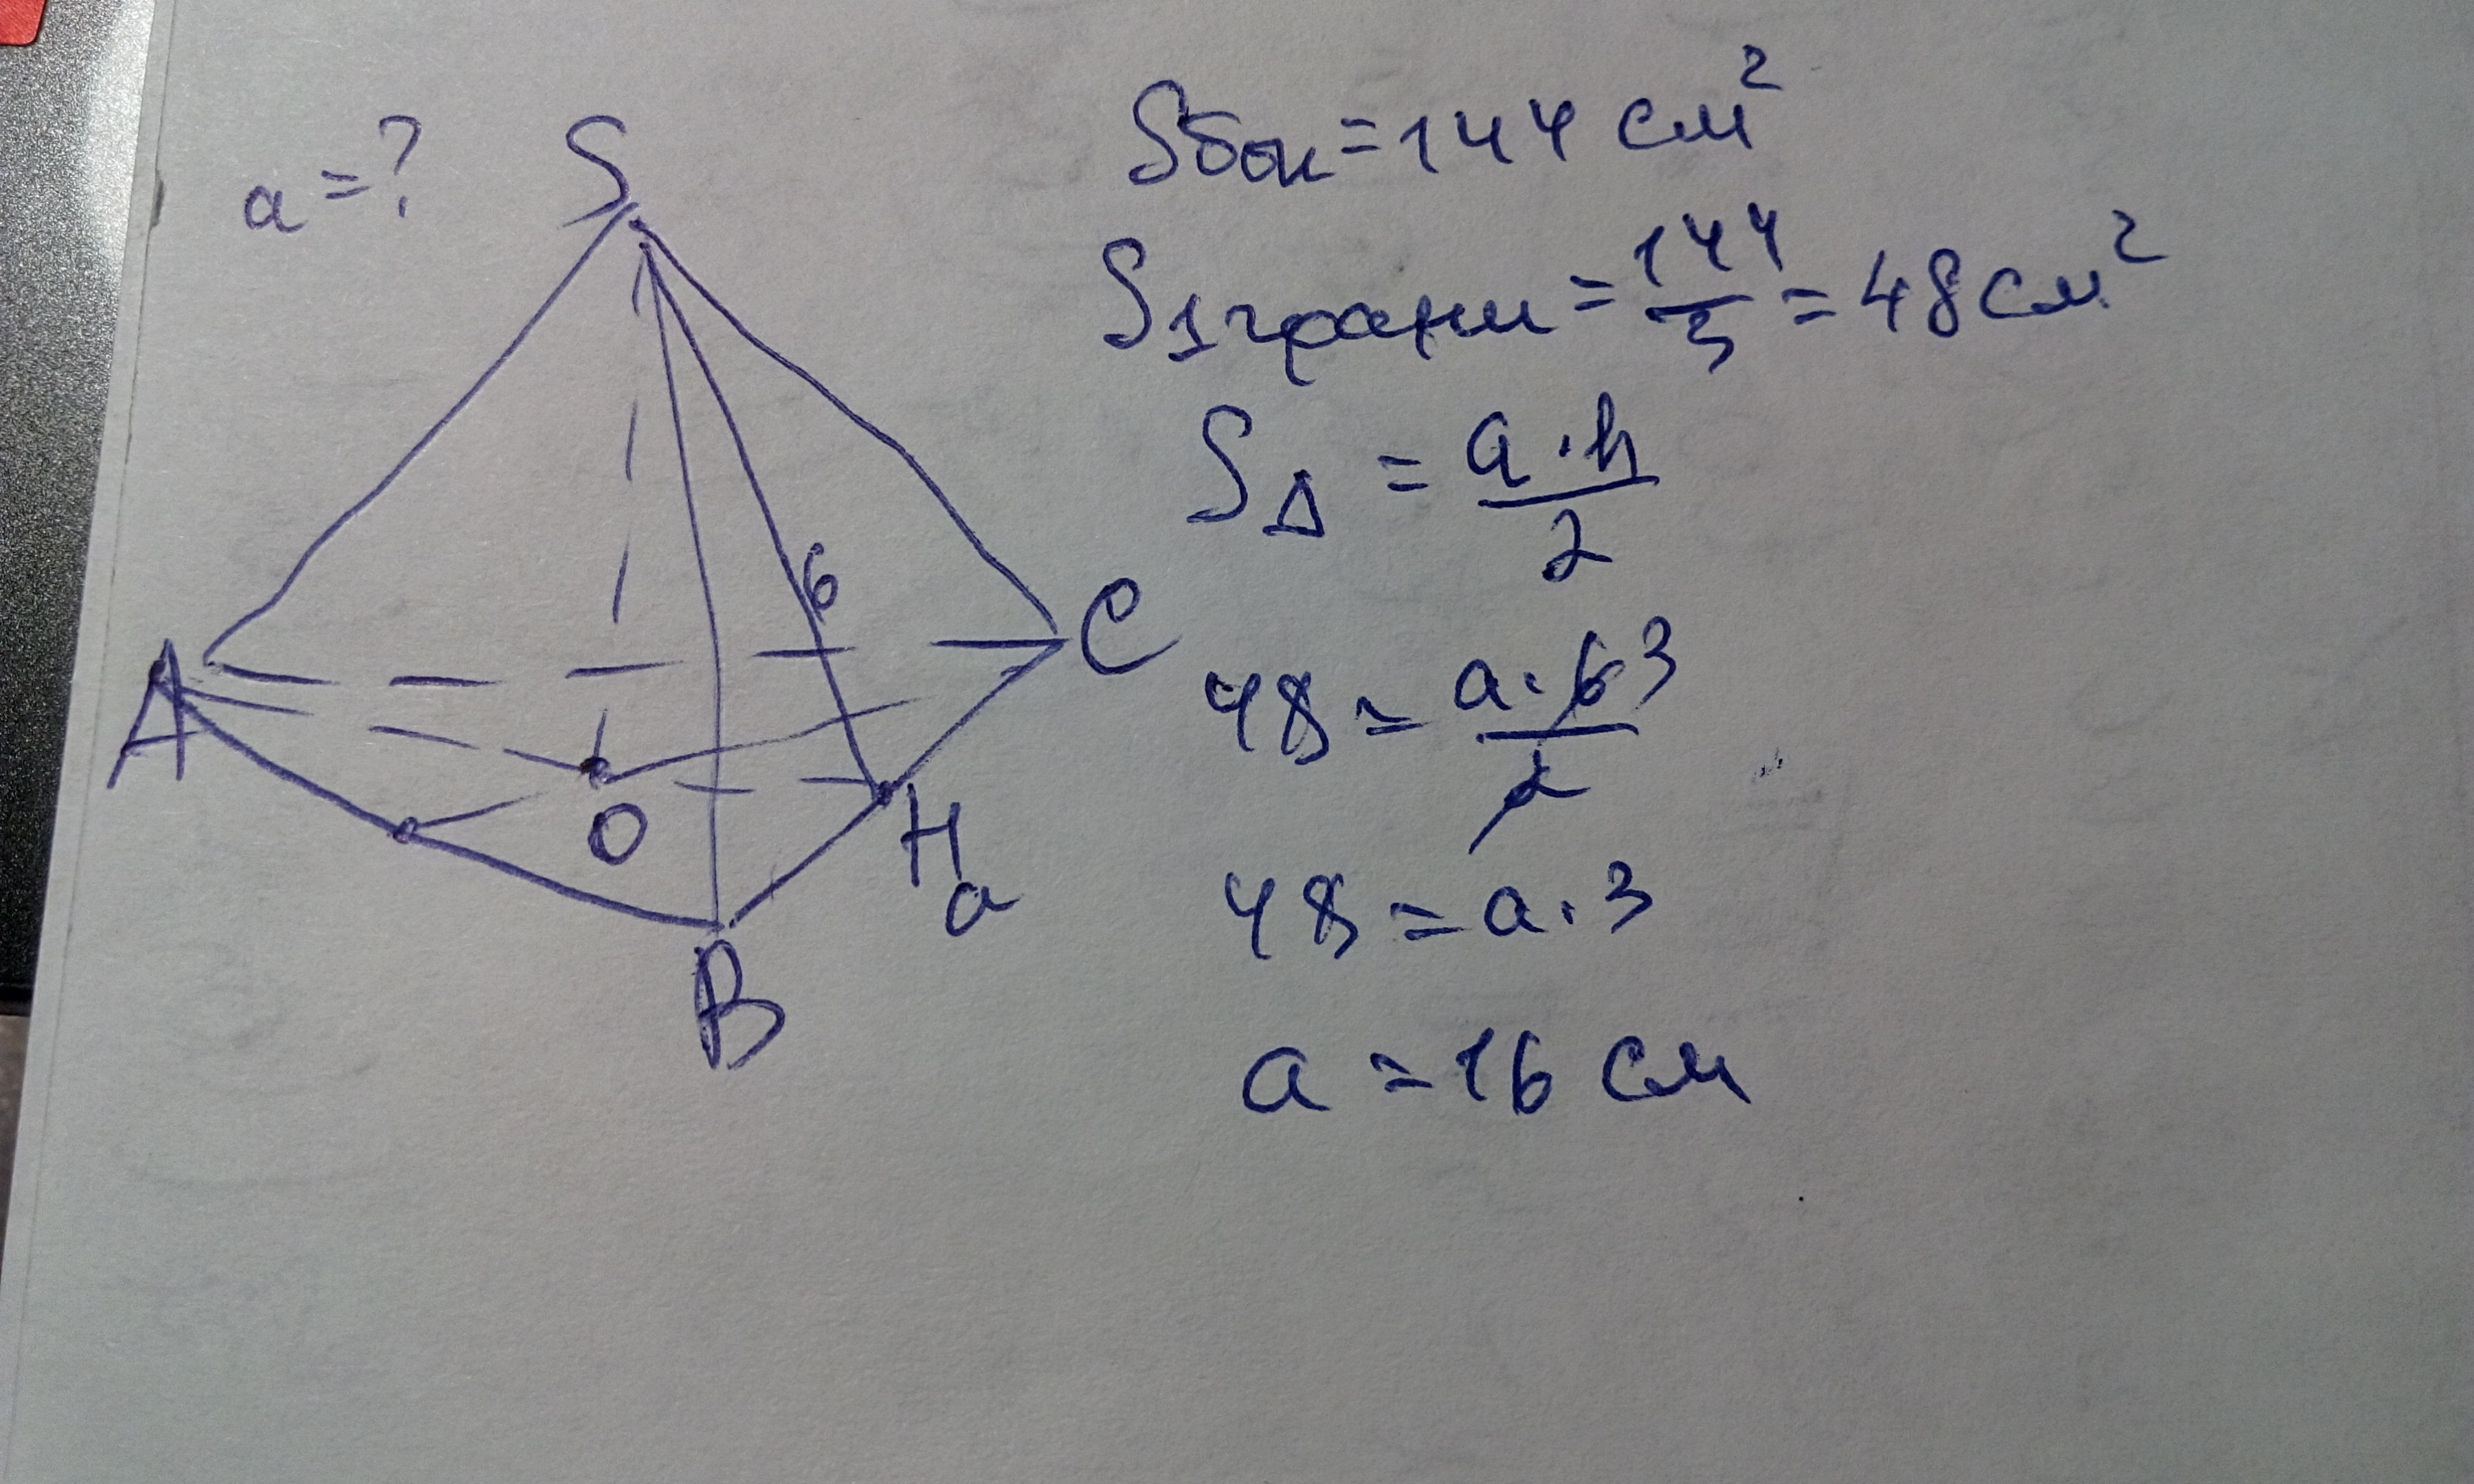 a = ?
S
A
B
C
O
H
a
6
Sбок = 144 см²
S1грани = 144/3 = 48 см²
S△ = a · h/2
48 = a · 6 3/2
48 = a · 3
a = 16 см